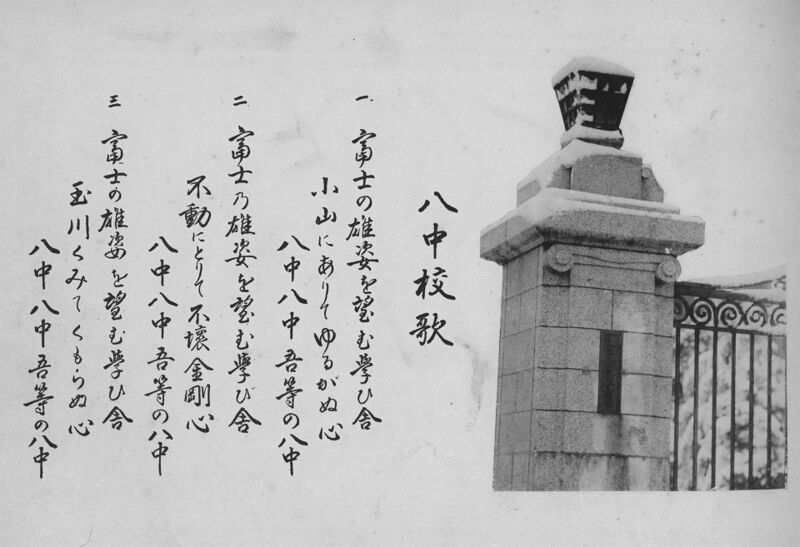 八中校歌
一 富士の雄姿を望む学び舎
小山にありてゆるがぬ心
八中八中吾等の八中
二 富士乃雄姿を望む学び舎
不動にとりて不壊金剛心
八中八中吾等の八中
三 富士の雄姿を望む学び舎
玉川くみてくもらぬ心
八中八中吾等の八中